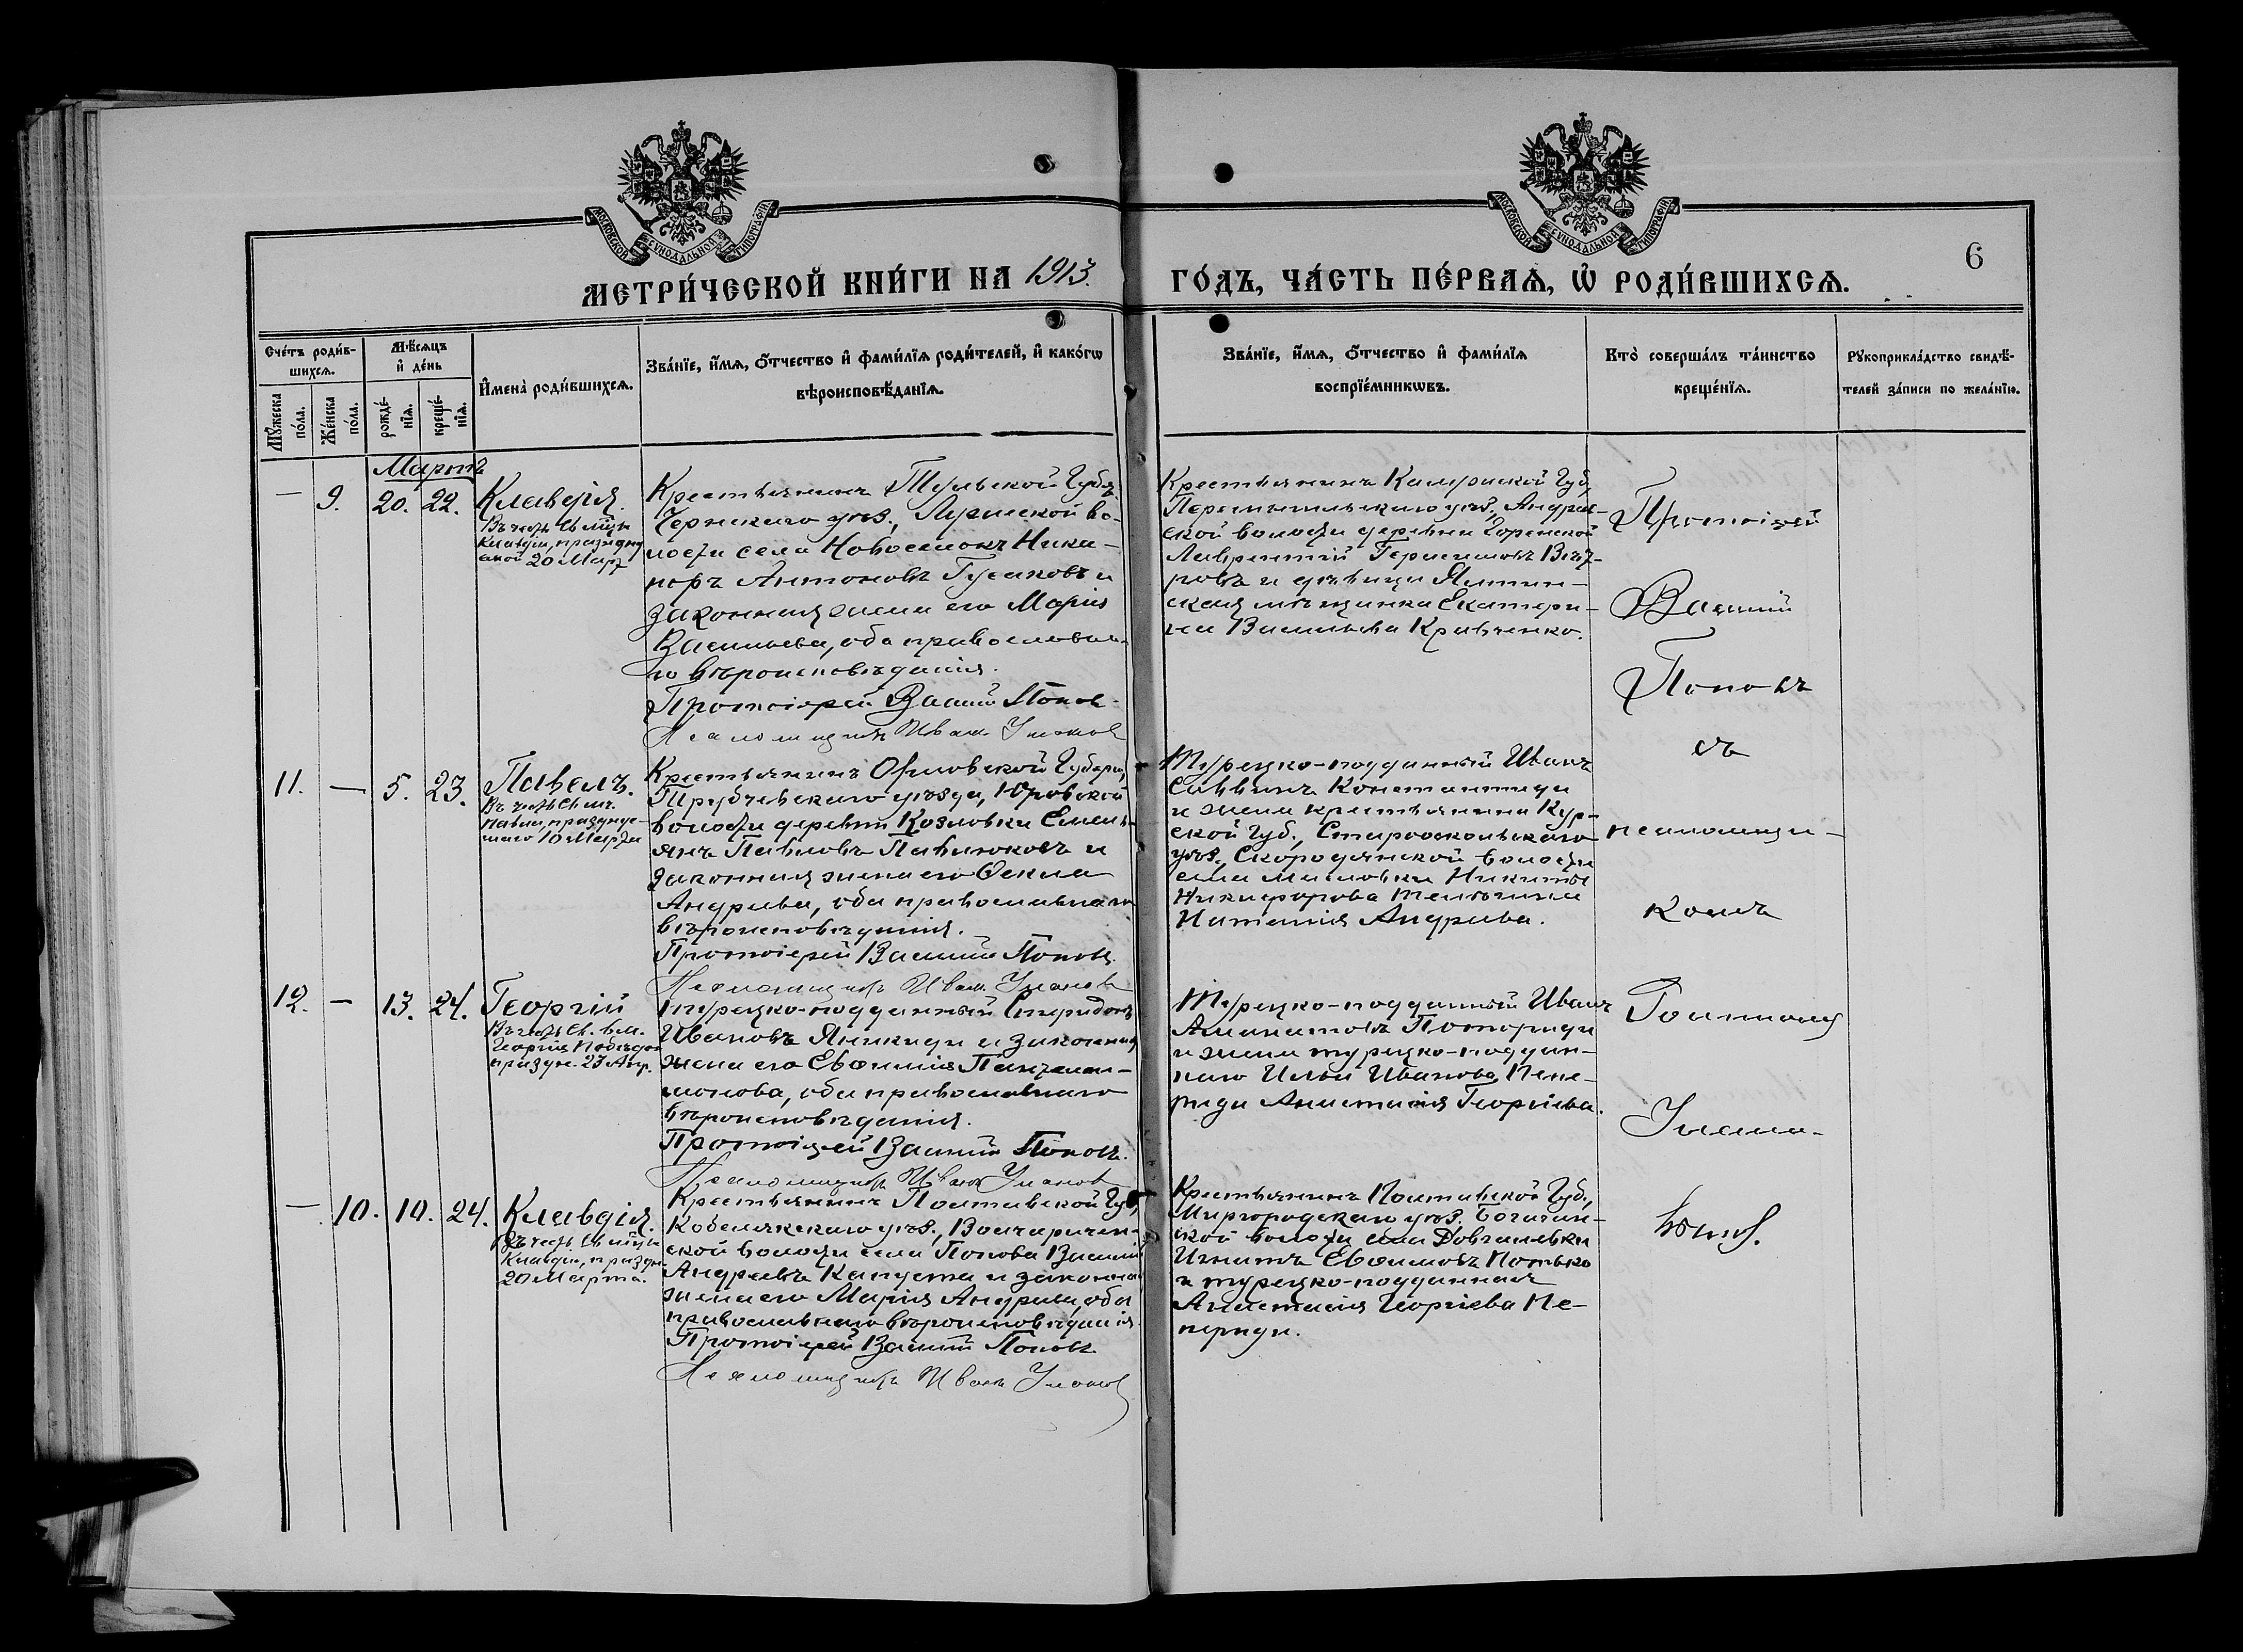 МОСКОВСКОЙ СУНОДАЛЬНОЙ ТИПОГРАФІИ
МОСКОВСКОЙ СУНОДАЛЬНОЙ ТИПОГРАФІИ
6
МЕТРИ́ЧЕСКОЙ КНИ́ГИ НА 1913. ГО́ДЪ, ЧА́СТЬ ПЕ́РВАѦ, Ѡ РОДИ́ВШИХСѦ.
Сче́тъ роди́в-
шихсѧ.
Мꙋ́жеска по́ла.
Же́нска по́ла.
Мѣ́сѧцъ и де́нь
рожде́-
нїѧ.
креще́-
нїѧ.
Имена̀ роди́вшихсѧ.
Зва́нїе, и́мѧ, ѻ́тчество и фами́лїѧ роди́телей, и како́гѡ
вѣроисповѣ́данїѧ.
Зва́нїе, и́мѧ, ѻ́тчество и фами́лїѧ
воспрїе́мникѡвъ.
Кто̀ соверша́лъ та́инство
креще́нїѧ.
Рꙋкоприкла́дство свидѣ́-
телей за́писи по жела́нїю.
Мартъ
— 9. 20. 22.
Клавдія.
Въ честь Св. мцы
Клавдіи, празднуе
мой 20 Марта
Крестьянинъ Тульской Губ.
Чернскаго уѣз.,
лости села Новоселокъ Ника-
норъ Антоновъ Гусаковъ и
законная жена его Марія
Васильева, оба православна-
го вѣроисповѣданія.
Протоіерей Василій Попов
Псаломщикъ Иван
Крестьянинъ Калужской Губ.
Перемышльскаго уѣз., Андреев-
ской волости деревни Горенской
Лаврентій Герасимовъ
ровъ и дѣвица Ялтин-
ская мѣщанка Екатери-
на Васильева Кравченко.
Протоіерей
Василій
Поповъ
съ
псаломщи-
комъ
Іоанномъ
11. — 5. 23.
Павелъ.
Въ честь Св. мч.
Павла, праздну-
маго 10 Марта
Крестьянинъ Орловской Губерн.,
Трубчевскаго уѣзда, Юровской
волости деревни Козловки Емель-
янъ Павловъ Павлюковъ и
законная жена его Ѳекла
Андреева, оба православнаго
вѣроисповѣданія.
Протоіерей Василій Поповъ.
Псаломщикъ Иван
Турецко-подданный Иванъ
Саввинъ Константиди
и жена крестьянина Кур-
ской Губ., Старооскольскаго
уѣз., Скороднянской волости
села Никиты
Никифорова
Наталія Андреева.
12. — 13. 24.
Георгій
Въ честь Св. вм.
Георгія Побѣдон
праздн. 23 Апр.
Турецко-подданный Спиридонъ
Ивановъ и законная
жена его Евѳимія Пантелеи-
монова, оба православнаго
вѣроисповѣданія.
Протоіерей Василій Поповъ.
Псаломщикъ Иванъ
Турецко-подданный Иванъ
и жена турецко-поддан-
наго Ильи Иванова Пепе-
риди Анастасія Георгіева.
— 10. 10. 24.
Клавдія.
Въ честь Св. мцы
Клавдіи, праздн.
20 Марта.
Крестьянинъ Полтавской Губ.,
Кобелякскаго уѣз.,
ской волости села Попова Василій
Андреевъ Капуста и законная
жена его Марія Андреева, оба
православнаго вѣроисповѣданія.
Протоіерей Василій Поповъ
Псаломщикъ Иванъ
Крестьянинъ Полтавской Губ.,
Миргородскаго уѣз. Богачан-
ской волости села Довгалевки
Игнатъ Евѳимовъ Потько
и турецко-подданная
Анастасія Георгіева Пе-
периди.